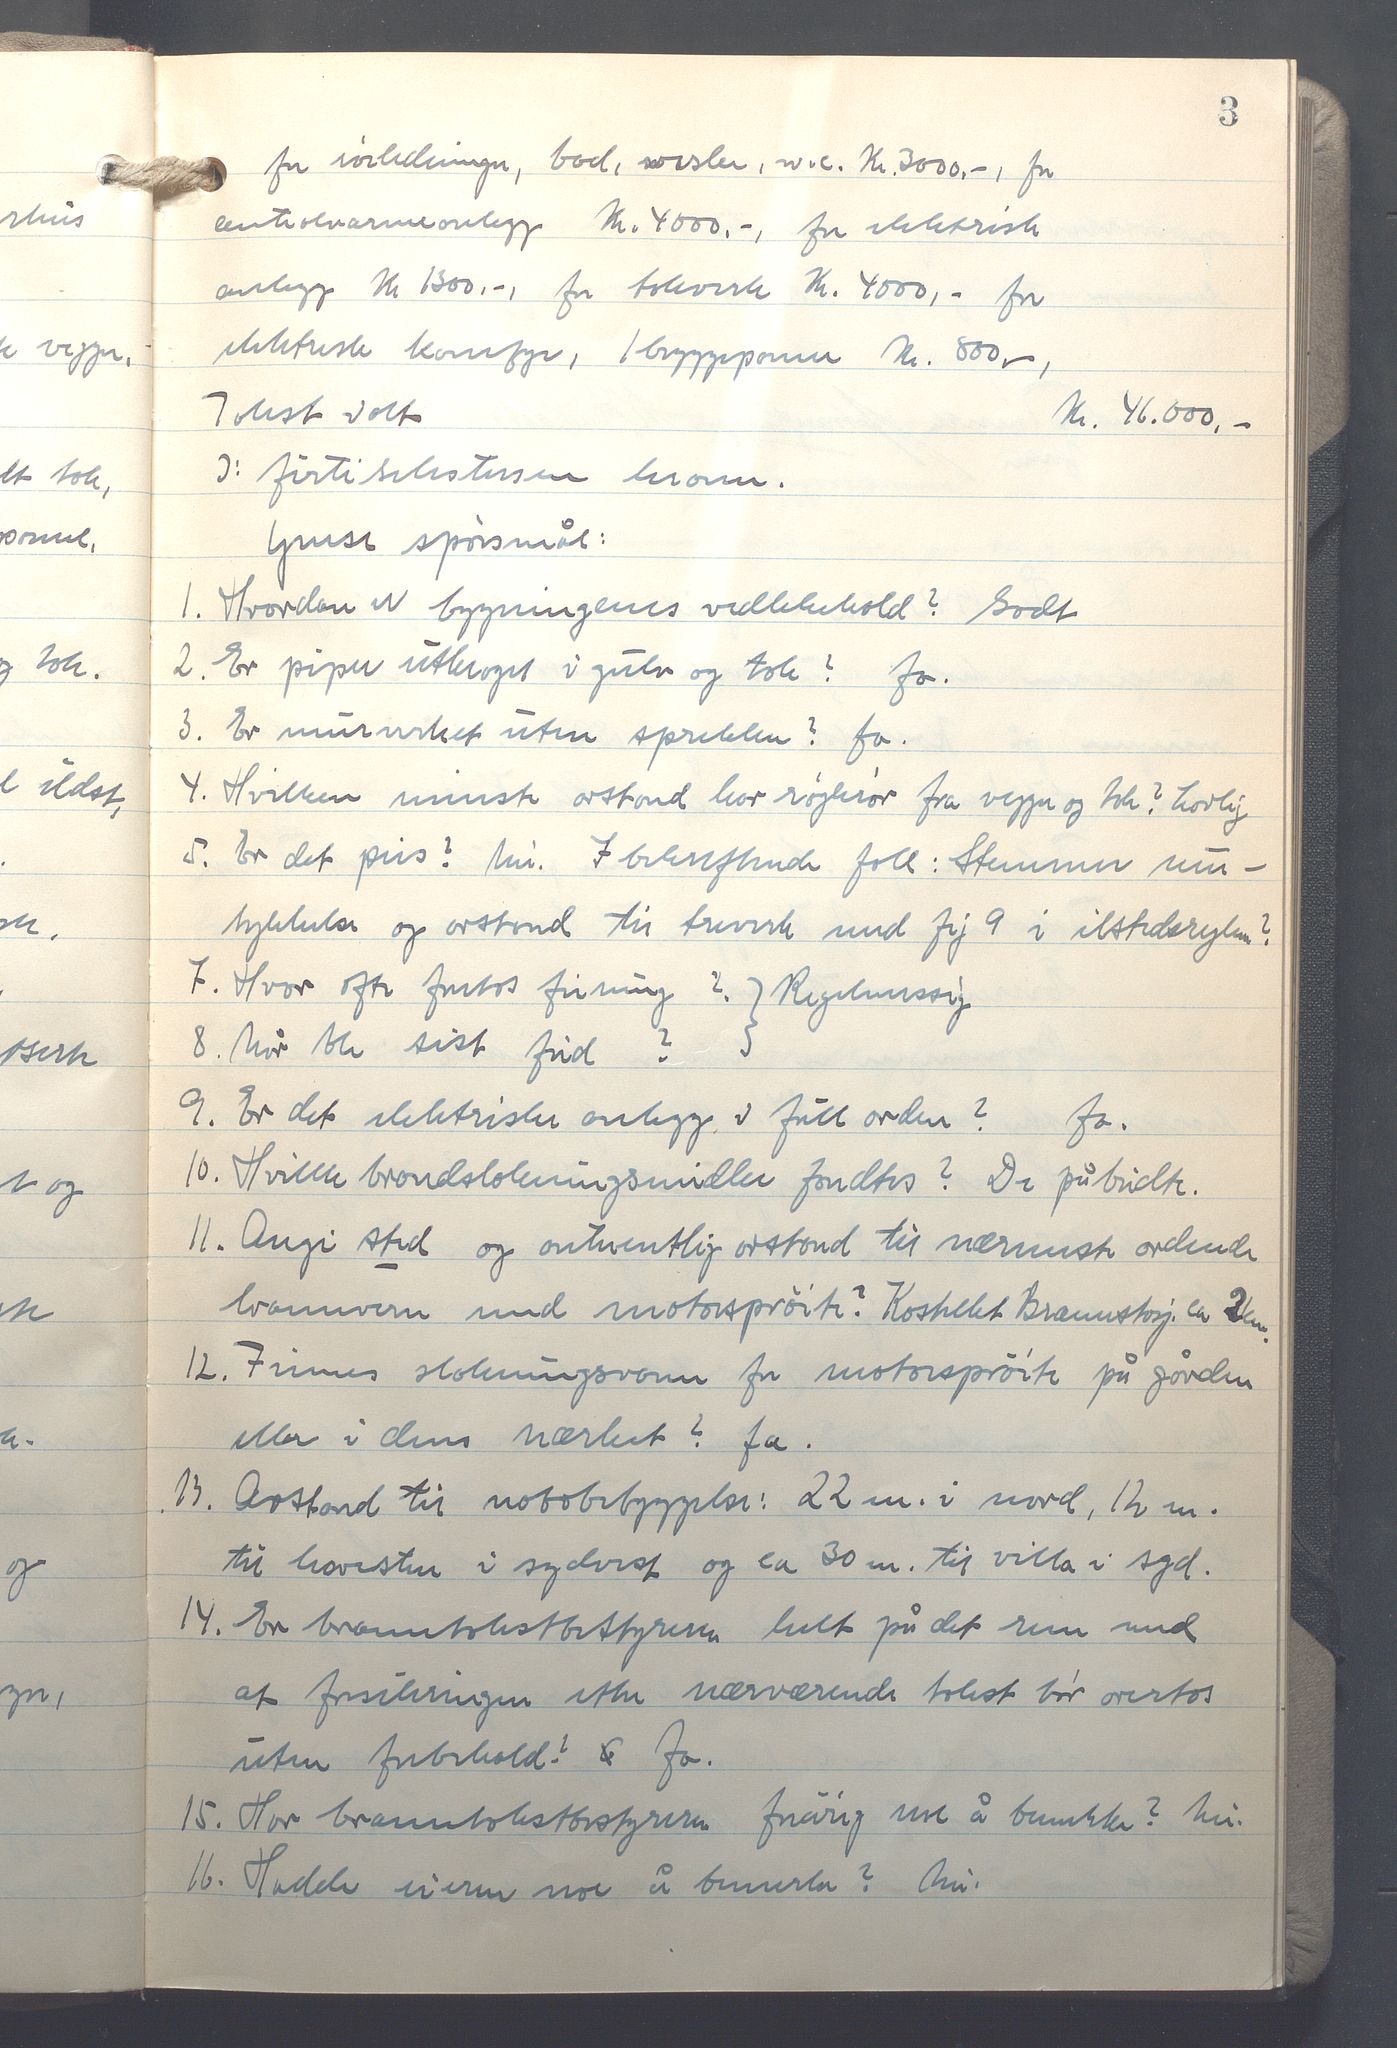 3
for rörledninger, bad, vasker, w.c. Kr. 3000,-, for
centralvarmeanlegg Kr. 4000,-, for elektrisk
anlegg Kr 1300,-, for takverk Kr. 4000,- for
elektriske komfyr, 1 bryggepanne Kr. 800,-,
Takst ialt Kr. 46.000,-
ɔ: förtisekstusen kroner.
Ymse spörsmål:
1. Hvordan er bygningenes vedlikehold? Godt
2. Er piper utkraget i gulv og tak? Ja.
3. Er murverket uten sprekker? Ja.
4. Hvilken minste avstand har rögkrör fra vegger og tak? Lovlig
5. Er det peis? Nei. I bekreftende fall: Stemmer mur-
tykkelse og avstand til treverk med fig 9 i ilstedsreglene?
7. Hvor ofte foretas feiing? } Regelmessig
8. Når ble sist feid ? }
9. Er det elektriske anlegg i full orden? Ja.
10. Hvilke brandslokningsmidler fandtes? De påbudte.
11. Angi sted og omtrentlig avstand til nærmeste ordende
brannvern med motorspröite? Kostellet Brannstasj. ca 2 km.
12. Finnes slokningsvann for motorspröite på gården
eller i dens nærhet? Ja.
13. Avstand til nabobebyggelse: 22 m. i nord, 12 m.
til havesten i sydvest og ca 30 m. til villa i syd.
14. Er branntakstbestyreren helt på det rene med
at forsikringen etter nærværende takst bör overtas
uten forbehold? Ja.
15. Har branntakstbestyreren forövrig noe å bemerke? Nei.
16. Hadde eieren noe å bemerke? Nei.
rhus
vegger,
lt tak,
panne,
g tak.
ildst,
t og
og